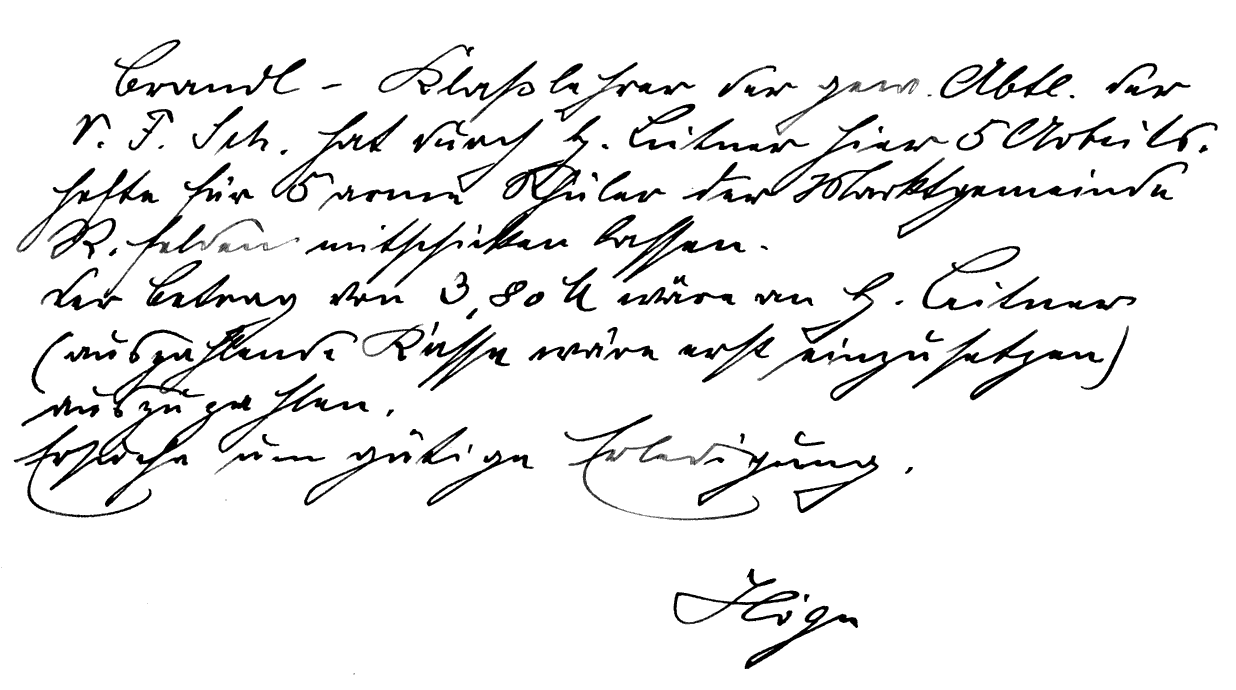 Brandl - Klaßlehrer der gew. Abtl. der
V. F. Sch. hat durch H. Leitner hier 5 Arbeits-
hefte für 5 arme Schüler der Marktgemeinde
R. felden mitschicken lassen.
Der Betrag von 3,80 M wäre an H. Leitner
(auszahlende Kasse wäre erst einzusetzen)
auszuzahlen.
Ersuche um gütige Erledigung.